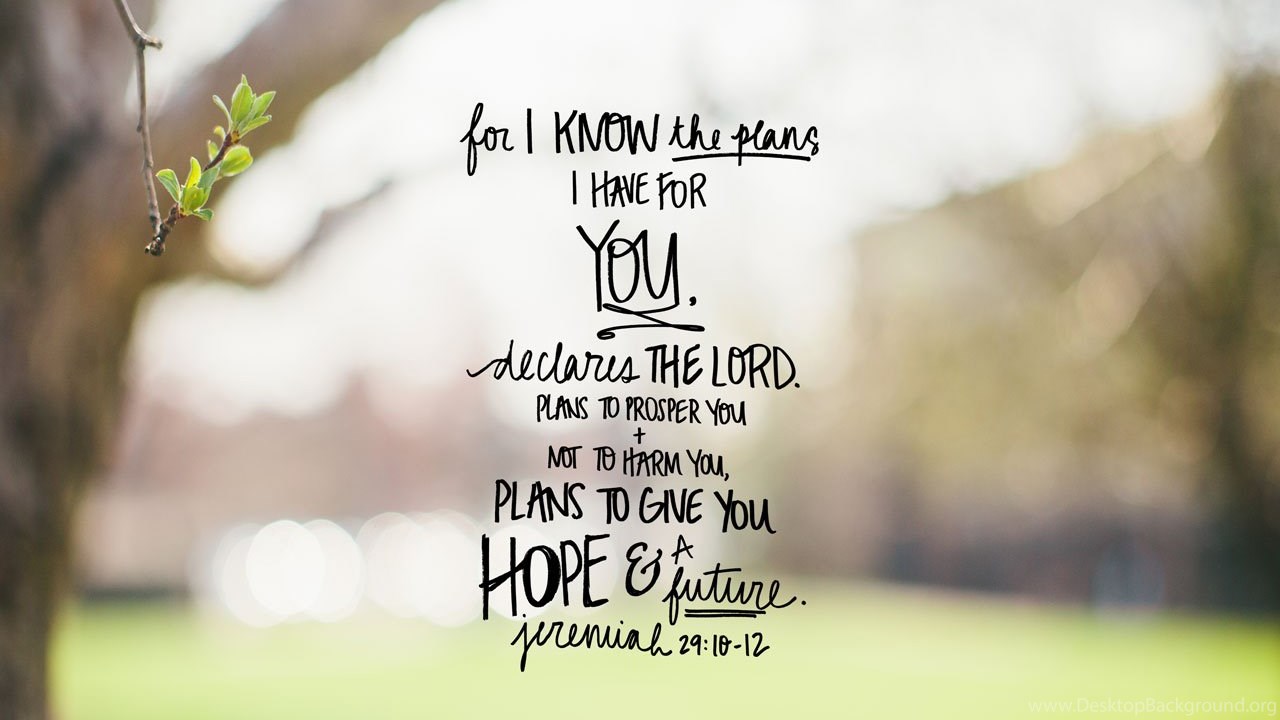 for I KNOW the plans
I HAVE FOR
YOU.
declares THE LORD.
PLANS TO PROSPER YOU
+
NOT TO HARM YOU,
PLANS TO GIVE YOU
HOPE & A
future.
jeremiah 29:10-12
www.DesktopBackground.org